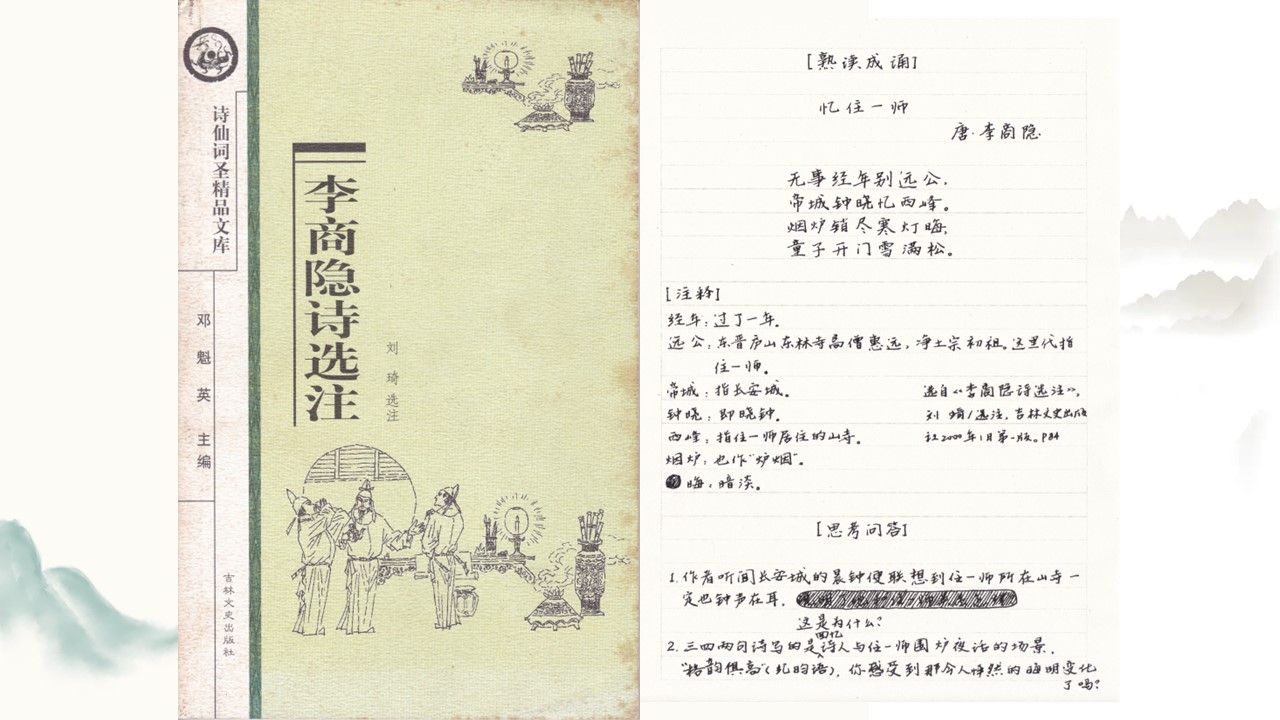 诗仙词圣精品文库
邓魁英 主编
吉林文史出版社
李商隐诗选注
刘琦选注
[熟读成诵]
忆住一师
唐·李商隐
无事经年别远公,
帝城钟晓忆西峰。
烟炉销尽寒灯晦,
童子开门雪满松。
[注释]
经年:过了一年。
远公:东晋庐山东林寺高僧惠远,净土宗初祖。这里代指
住一师。
帝城:指长安城。
钟晓:即晓钟。
西峰:指住一师居住的山寺。
烟炉:也作“炉烟”。
晦:暗淡。
选自《李商隐诗选注》,
刘琦/选注,吉林文史出版
社2000年1月第一版。P84
[思考问答]
1.作者听闻长安城的晨钟便联想到住一师所在山寺一
定也钟声在耳,
这是为什么?
2.三四两句诗写的是回忆诗人与住一师围炉夜话的场景,
“格韵俱高”(纪昀语),你感受到那令人悴然的晦明变化
了吗?